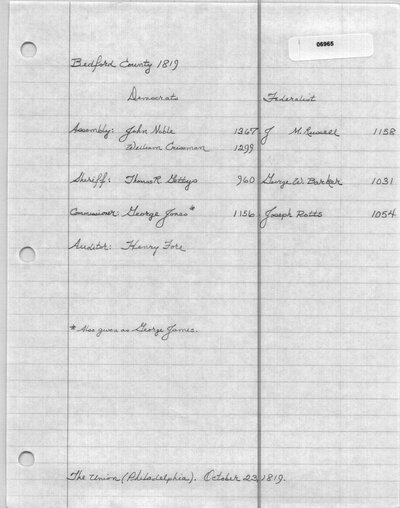 06965
Bedford County 1819
Democrats Federalist
Assembly: John Noble 1367 J M. Russell 1158
William Crissman 1299
Sheriff: Thomas R Gettys 960 George W. Barker 1031
Commissioner: George Jones* 1156 Joseph Potts 1054
Auditor: Henry Fore
* Also given as George James.
The Union (Philadelphia). October 23, 1819.